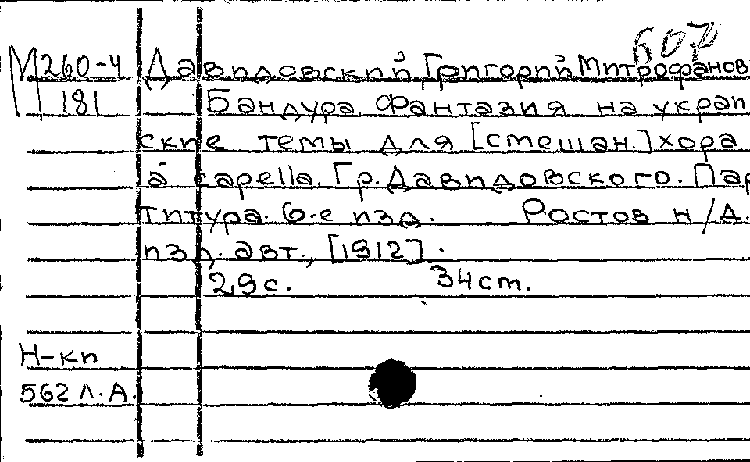 607
М260-4 Давидовский, Григорий Митрофанов
181 Бандура. Фантазия на украи
ские темы для [смешан.] хора
a capella. Гр. Давидовского. Пар
титура. 6-е изд. Ростов н/Д.
изд. авт., [1912].
29 с. 34 cm.
Н-кп
562 л. А.